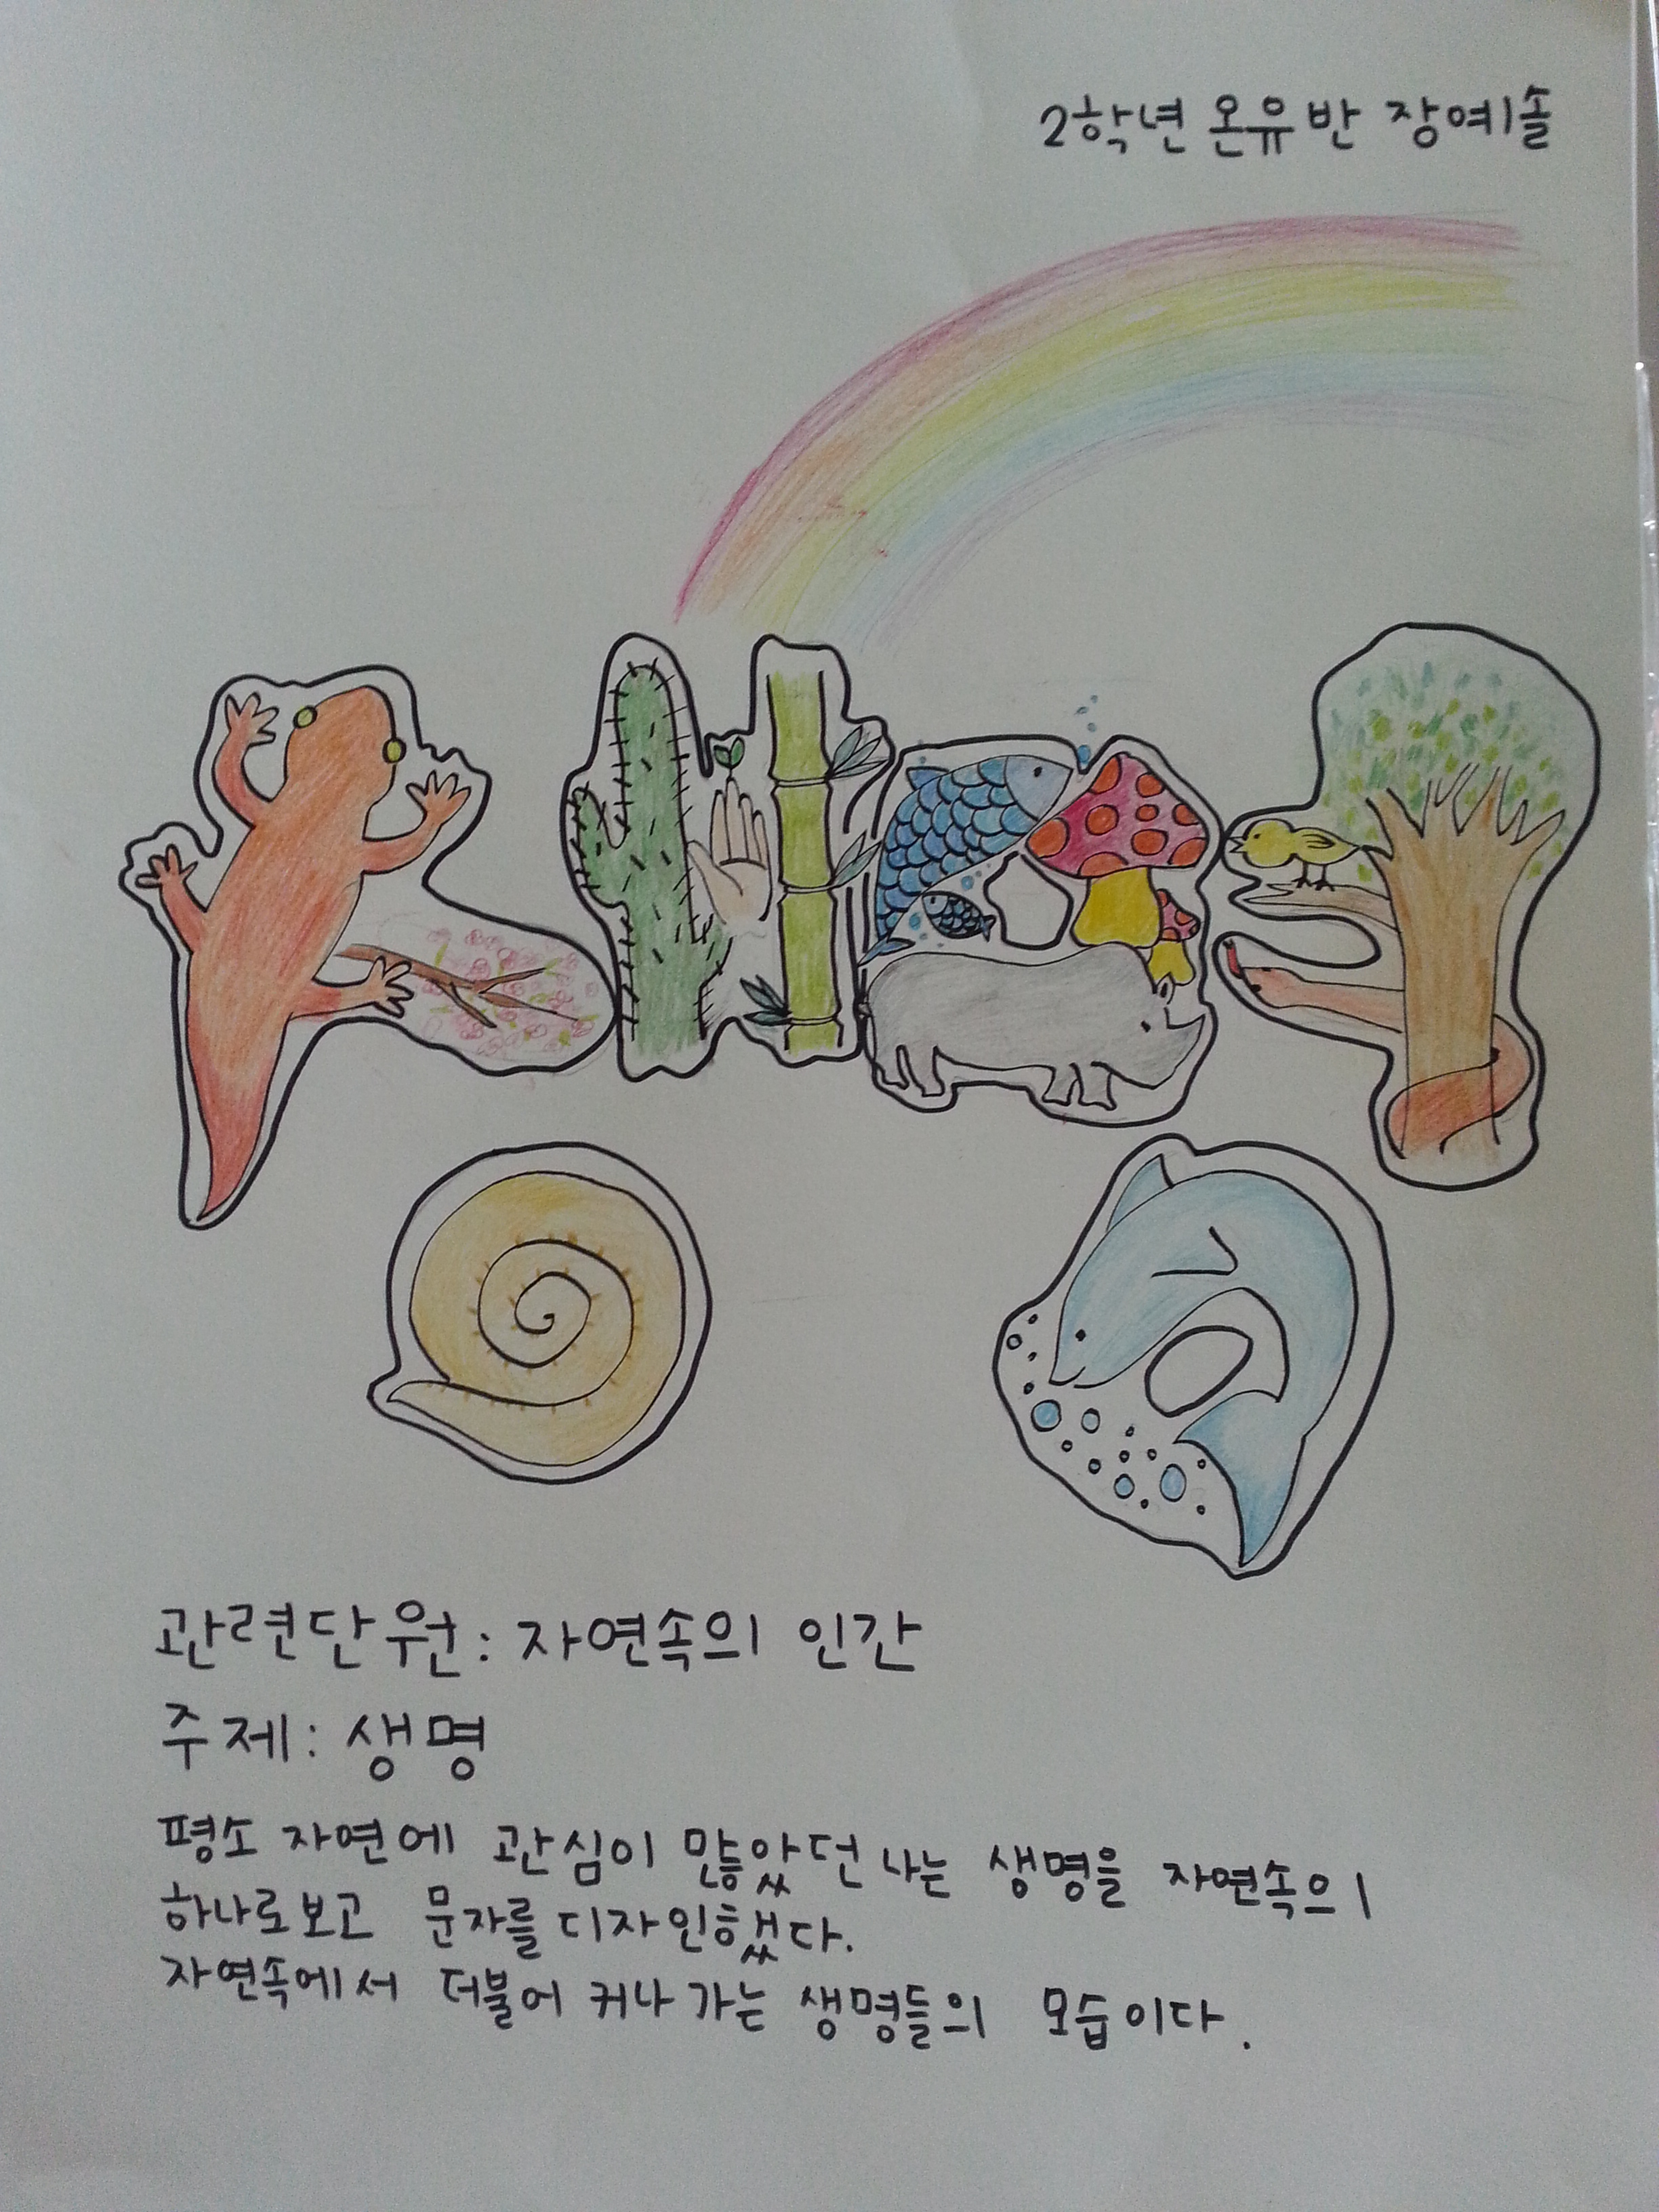 2학년 온유반 장예솔
생명
관련단원: 자연속의 인간
주제: 생명
평소 자연에 관심이 많았던 나는 생명을 자연속의
하나로보고 문자를 디자인했다.
자연속에서 더불어 커나가는 생명들의 모습이다.